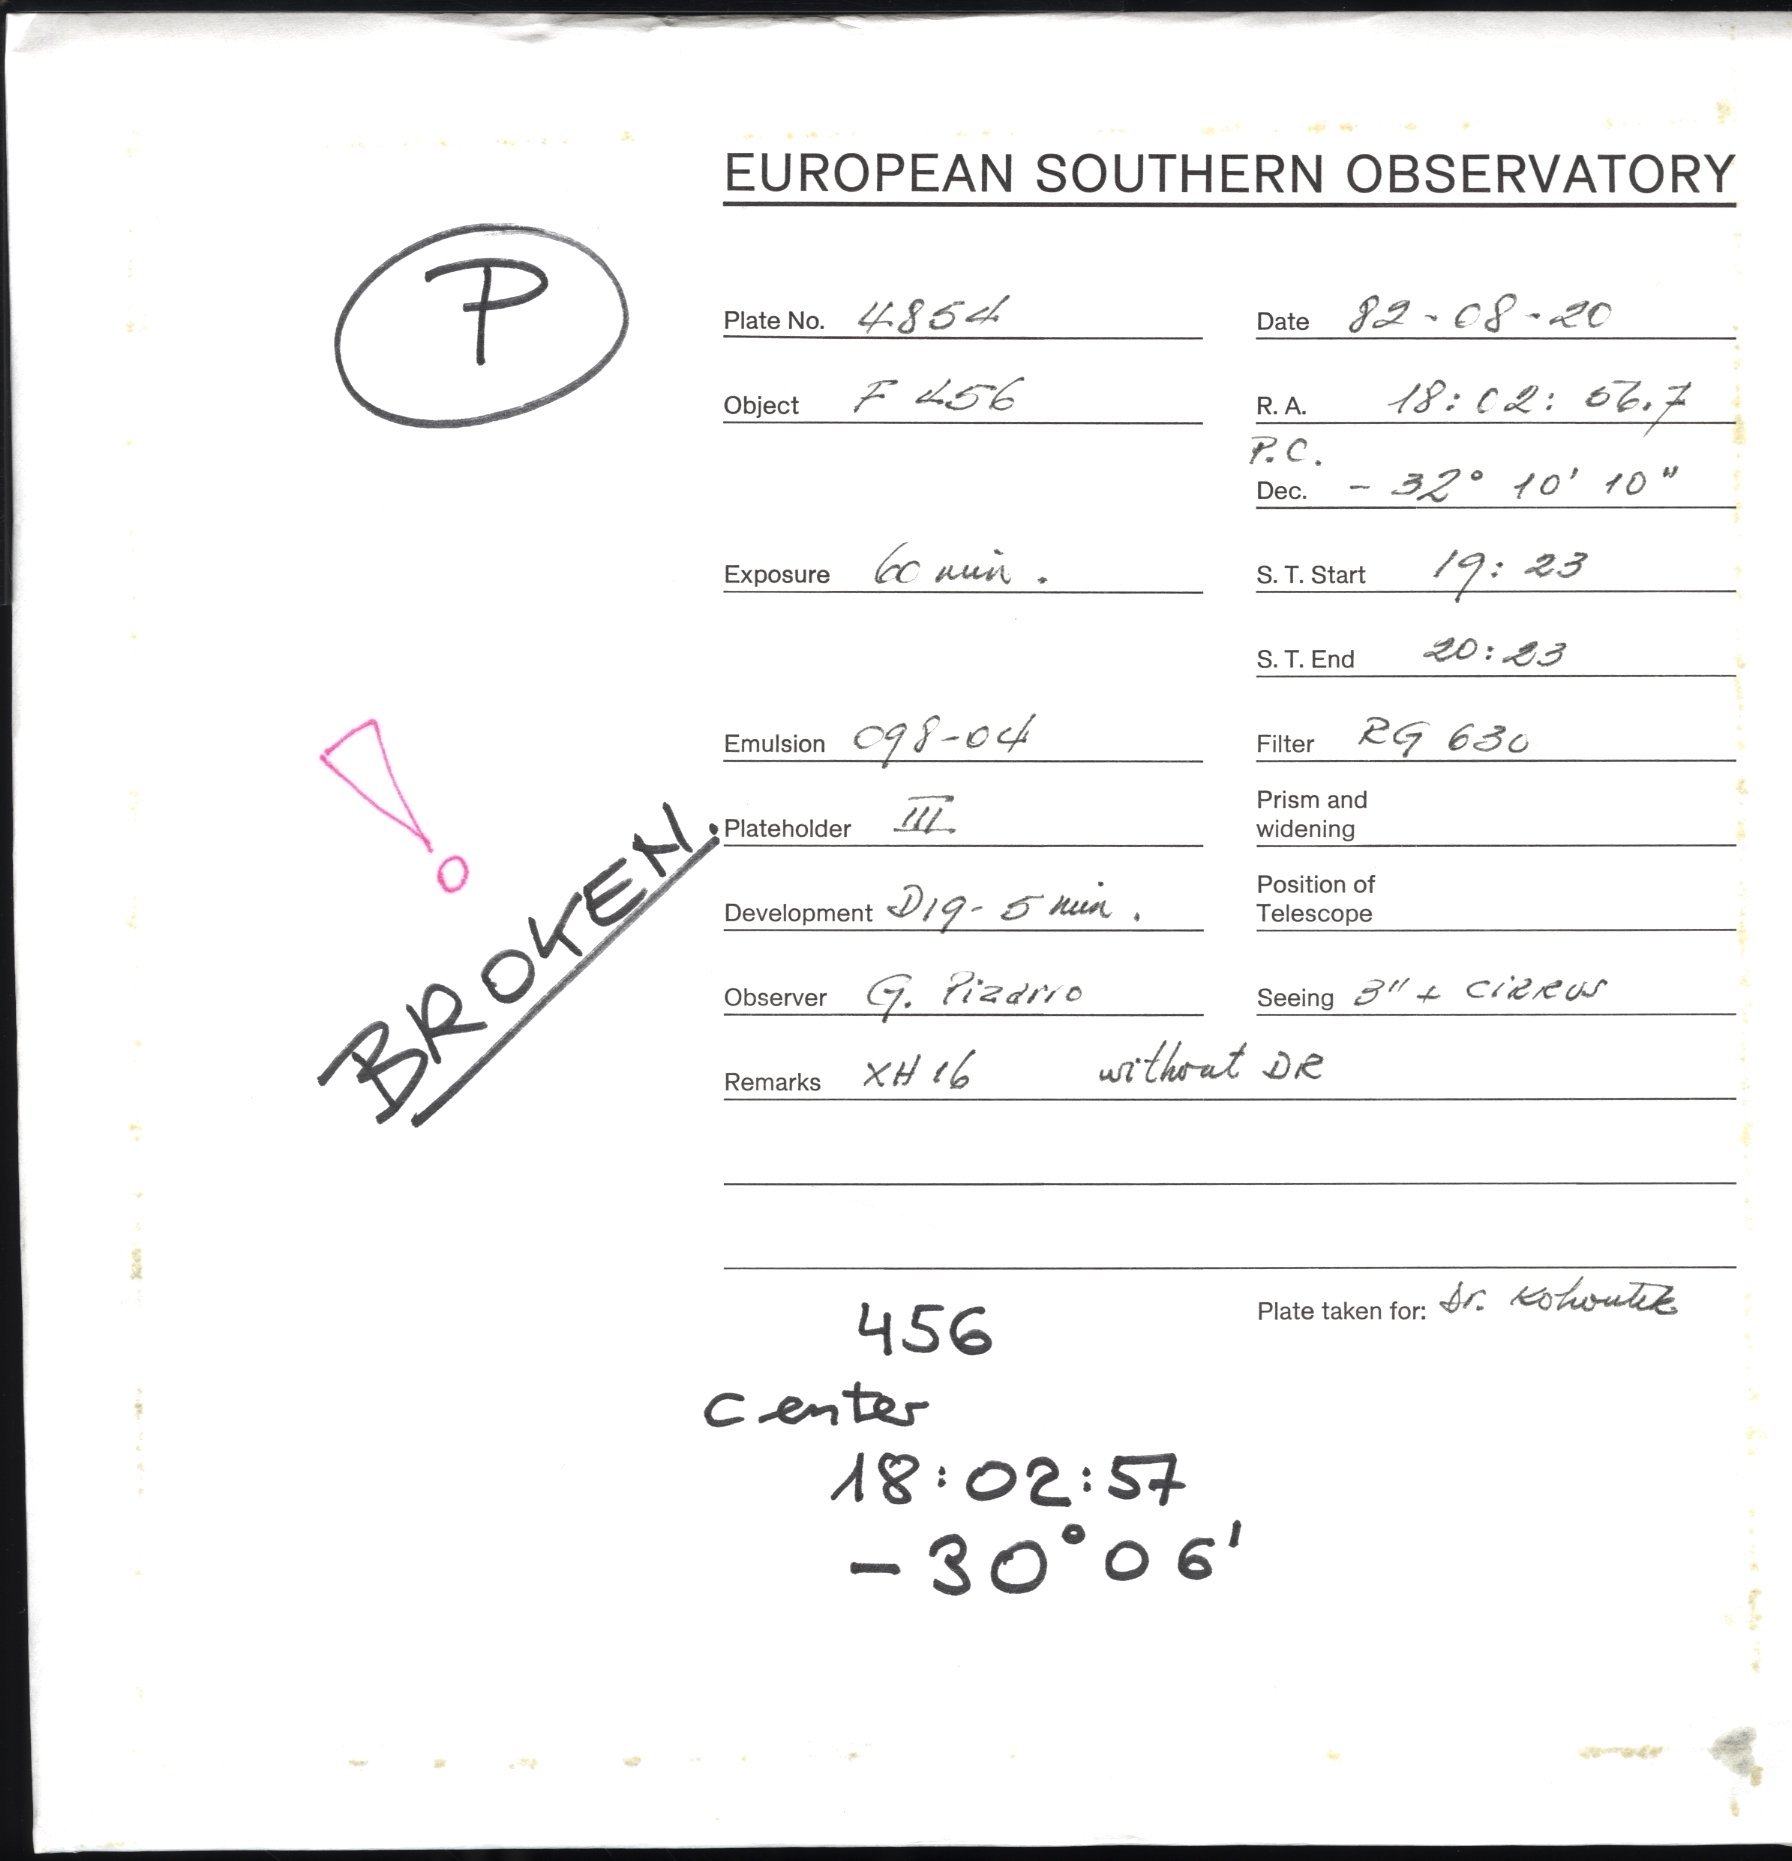 EUROPEAN SOUTHERN OBSERVATORY
P
Plate No. 4854 Date 82-08-20
Object F 456 R. A. 18:02:56.7
P.C.
Dec. -32° 10' 10"
Exposure 60 min. S. T. Start 19:23
S. T. End 20:23
Emulsion 098-04 Filter RG 630
Plateholder III Prism and
widening
Development D19-5 min. Position of
Telescope
Observer G. Pizarro Seeing 3" + CIRRUS
Remarks XH 16 without DR
!
BROKEN.
Plate taken for: Dr. Kohoutek
456
center
18:02:57
-30° 06'